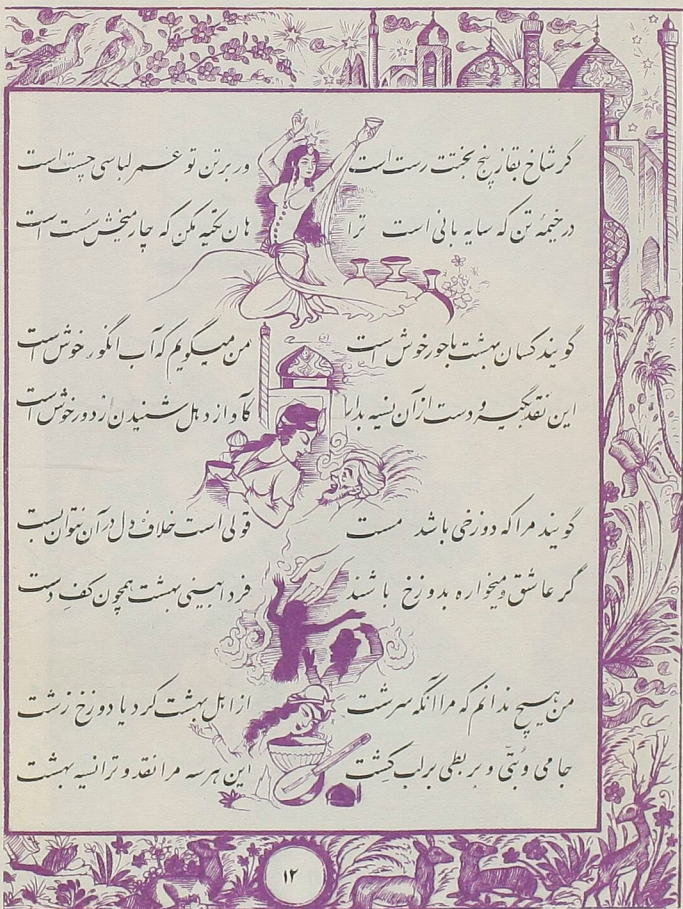 گر شاخ بقا ز بیخ بختت رست است    ور بر تن تو عمر لباسی چست است
در خیمهٔ تن که سایه بانی است ترا    هان تکیه مکن که چار میخش سست است
گویند کسان بهشت با حور خوش است    من میگویم که آب انگور خوش است
این نقد بگیر و دست از آن نسیه بدار    کآواز دهل شنیدن از دور خوش است
گویند مرا که دوزخی باشد مست    قولی است خلاف دل در آن نتوان بست
گر عاشق و میخواره بدوزخ باشند    فردا بینی بهشت همچون کف دست
من هیچ ندانم که مرا آنکه سرشت    از اهل بهشت کرد یا دوزخ زشت
جامی و بتی و بربطی بر لب کشت    این هر سه مرا نقد و ترا نسیه بهشت
۱۲